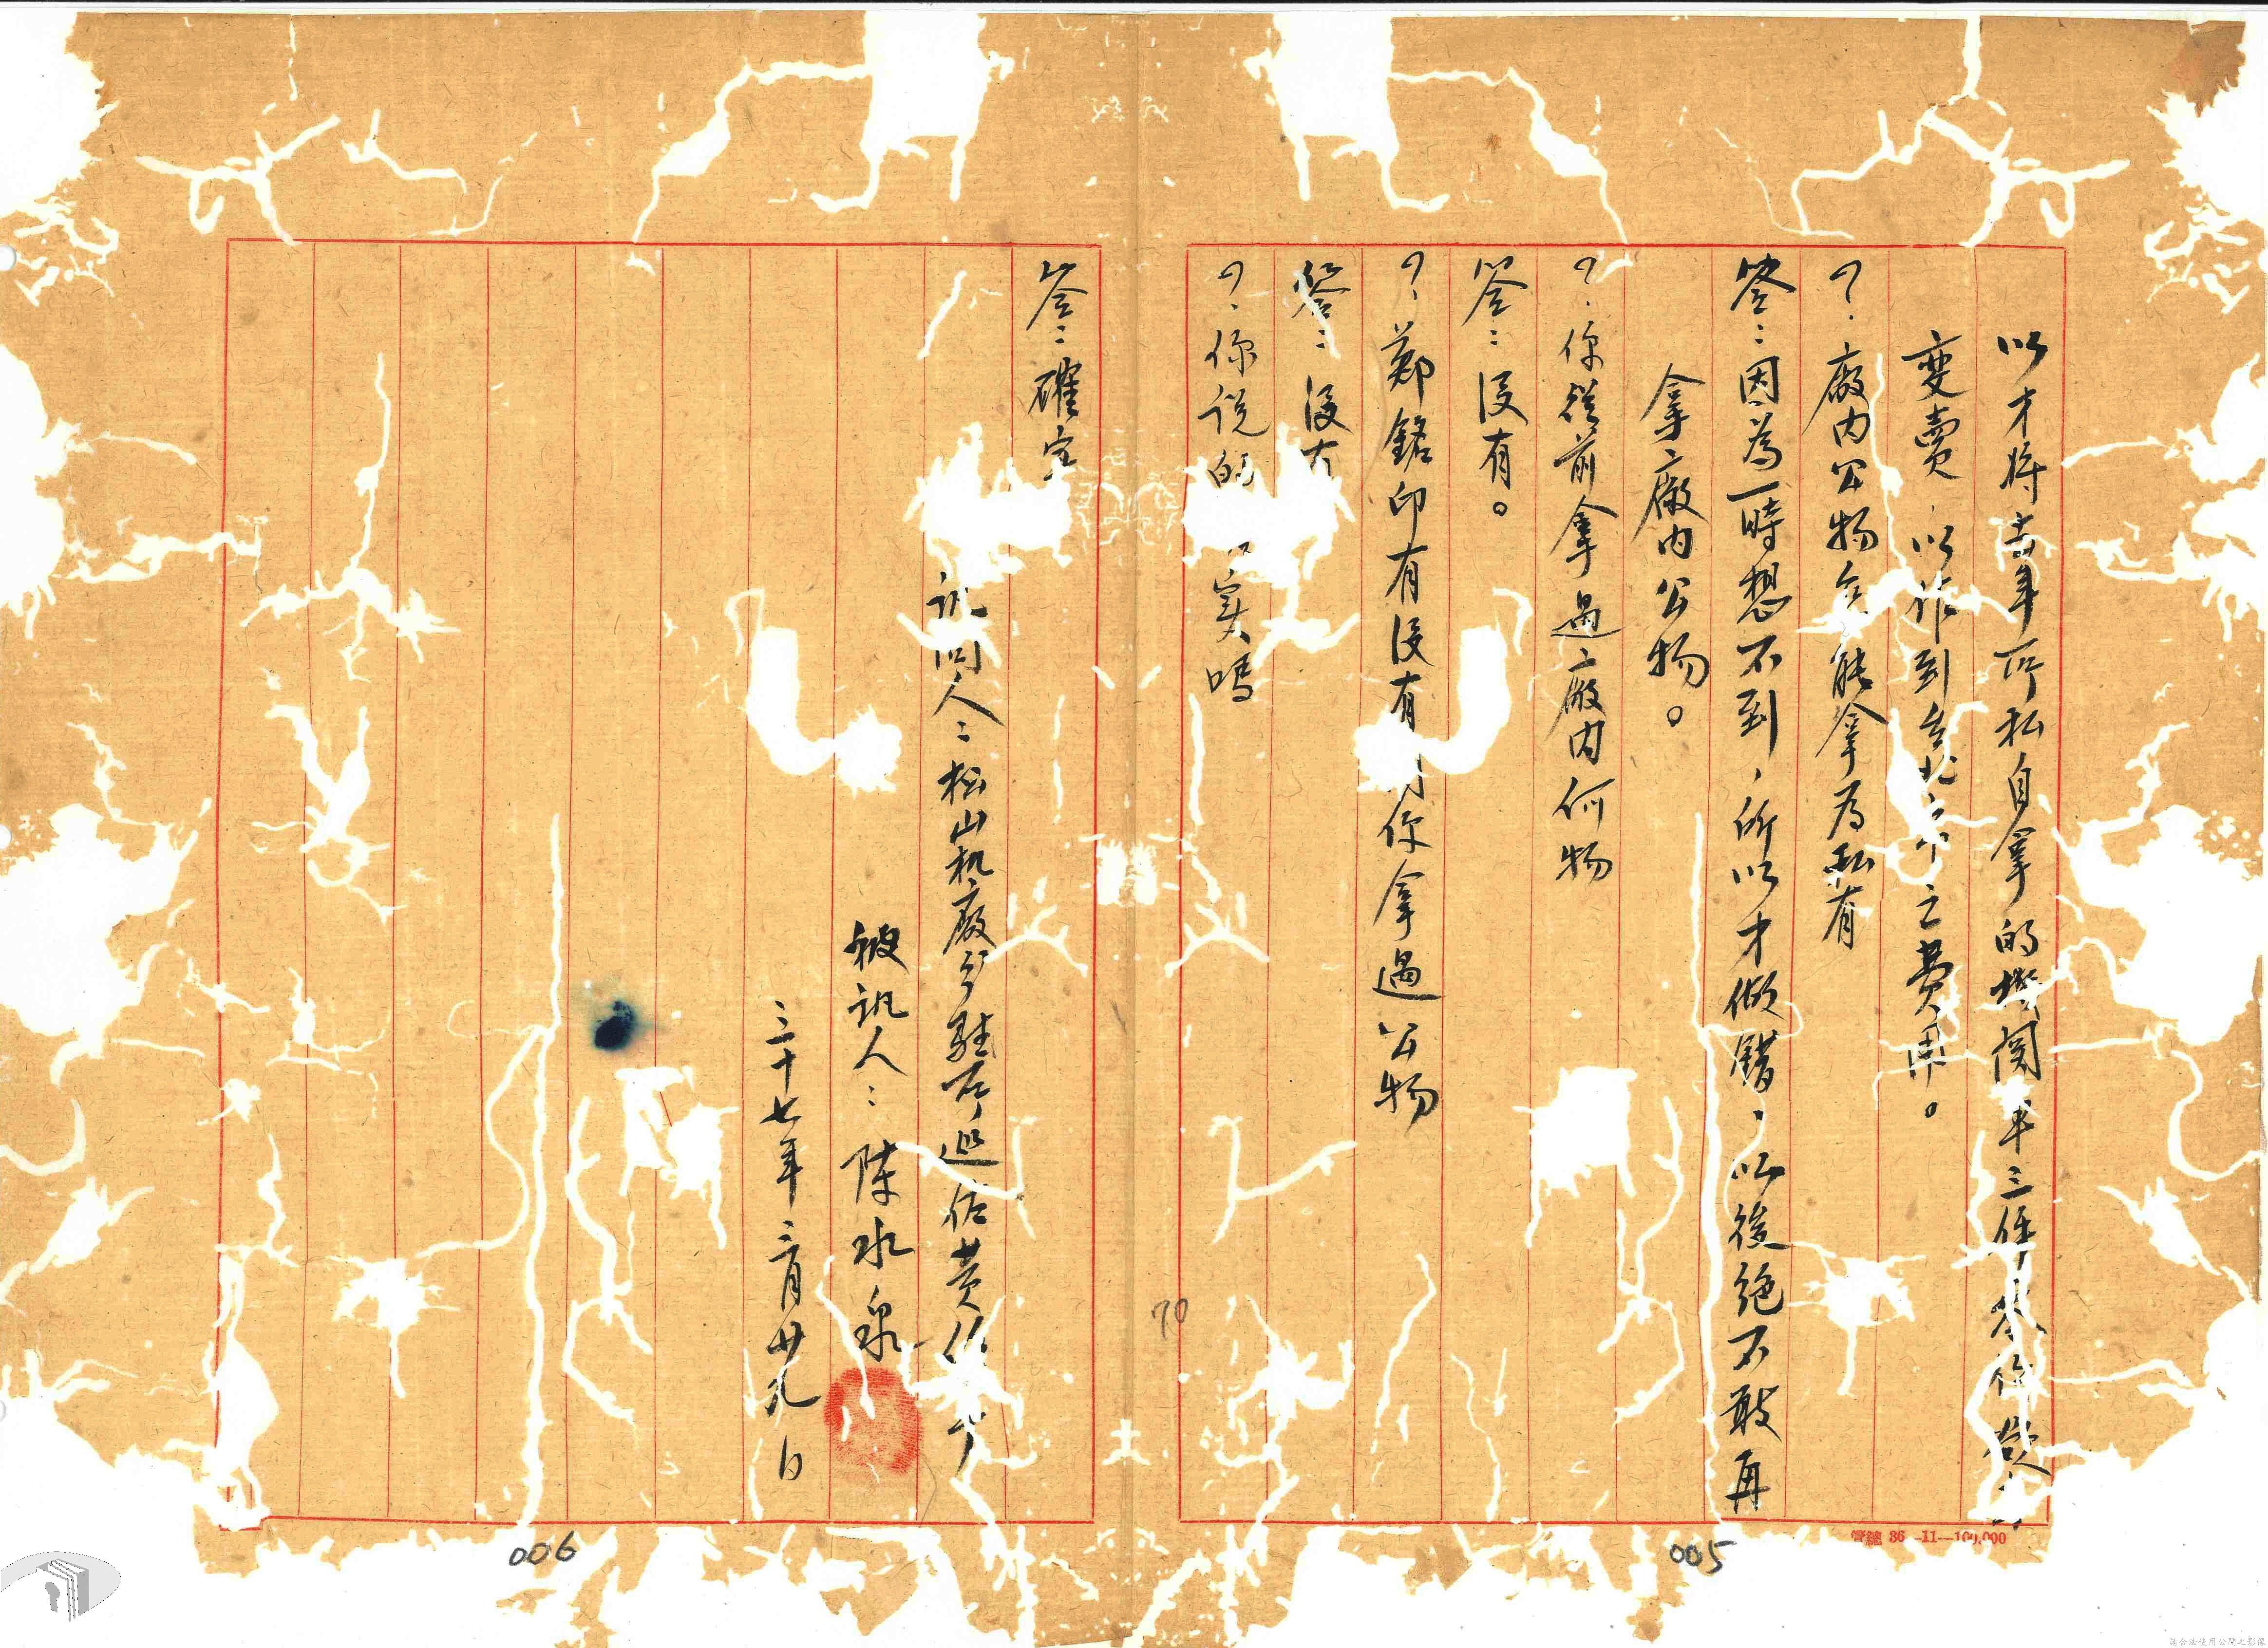 以才將去年所私自拿的機關車三件
變賣以作到台北市之費用。
?.廠內公物怎能拿為私有
答:因為一時想不到,所以才做錯,以後絕不敢再
拿廠內公物。
?.你從前拿過廠內何物
答:沒有。
?.鄭銘印有沒有 你拿過公物
答:沒有
?.你說的 實嗎
答:確實
訊問人:松山机廠 駐 巡佐黃
被訊人:陳水泉
三十七年三月廿九日
70
006
005
管總 36-11-100,000
請合法使用公開之影像